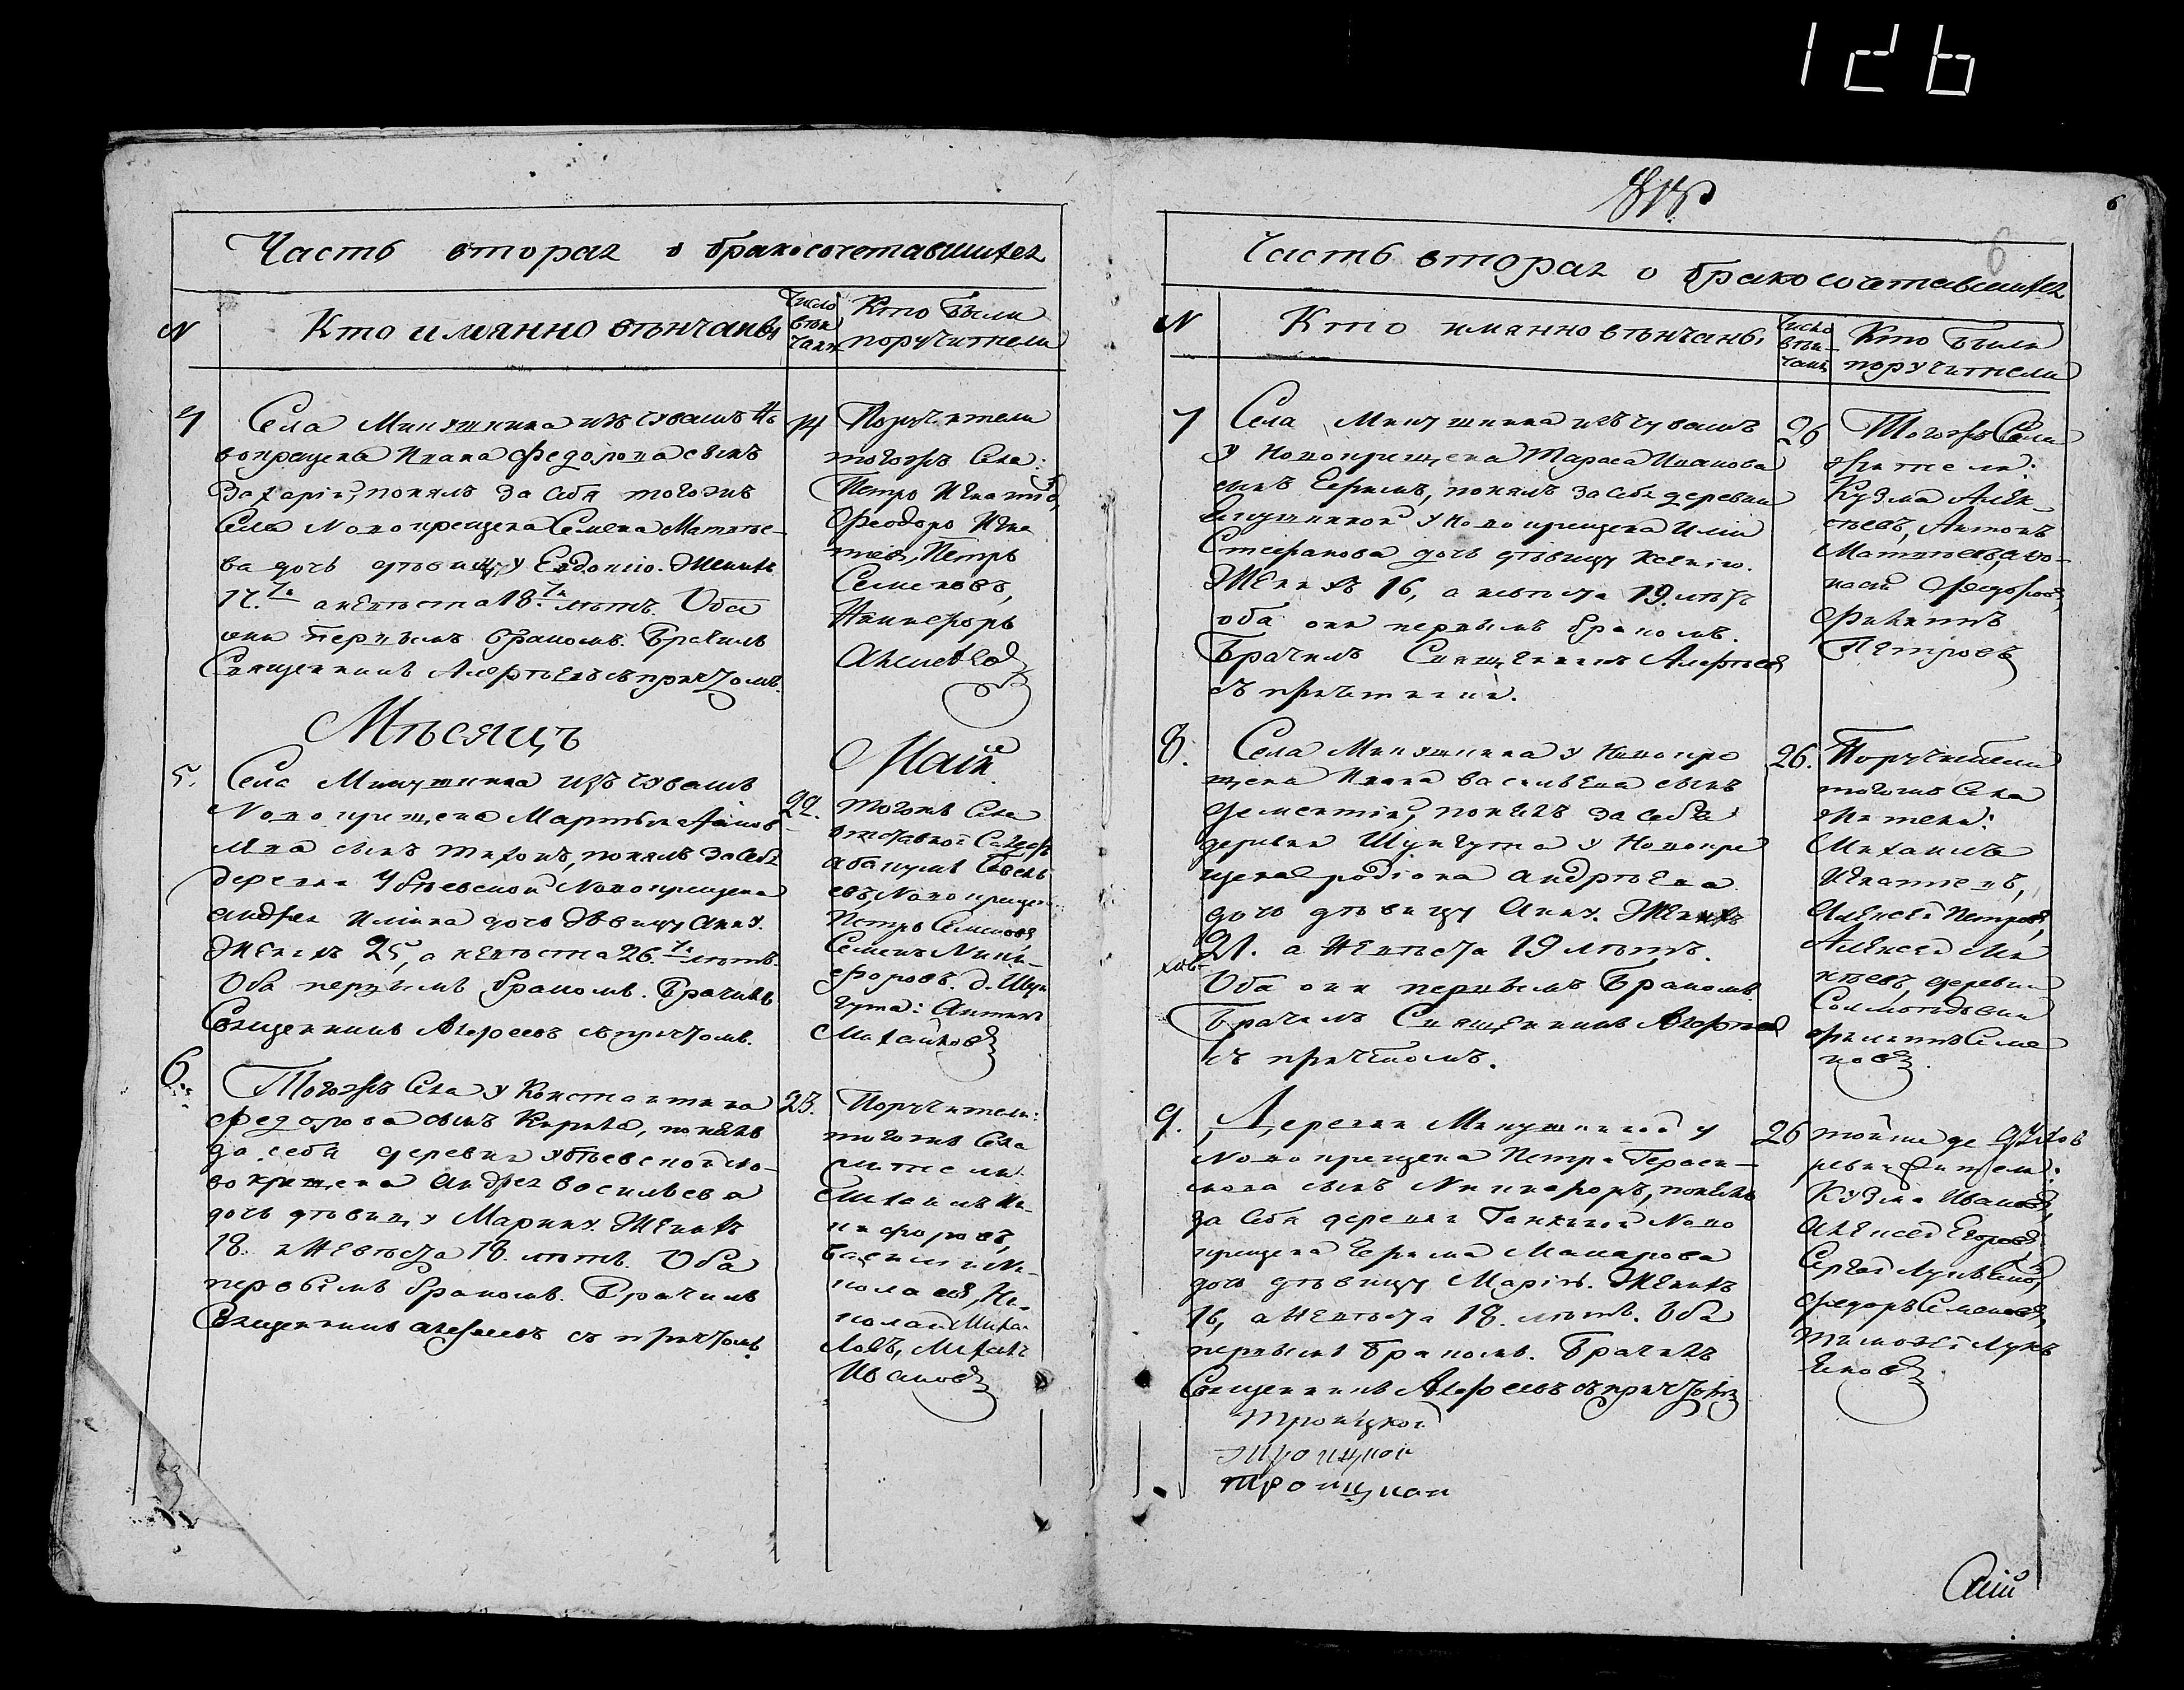 126
6
6
Часть вторая о бракосочетавшихся
N
Кто имянно вѣнчаны
Число вѣнчанія
Кто были поручители
4
Села Минушкина изъ чувашъ Но
вокрещена Ивана Федорова сынъ
Захарія, понялъ за себя тогожъ
Села Новокрещена Семена Матвѣе-
ва дочь дѣвицу Евдокію. Женихъ
17.ти а невѣста 18.ти лѣтъ. Оба
они первымъ бракомъ. Брачилъ
Священникъ Алефѣевъ съ причтомъ.
14
Поручители
тогожъ Села:
Петръ Игнатіев,
Феодоръ Игна
тіев, Петръ
Семеновъ,
Никифоръ
Мѣсяцъ
Май
5.
Села Минушкина изъ чувашъ
Новокрещена
сынъ Тихонъ, понялъ за себя
деревни Убѣевской Новокрещена
Андрея Ильина дочь дѣвицу Анну.
Женихъ 25, а невѣста 26.ти лѣтъ.
Оба первымъ бракомъ. Брачилъ
Священникъ Алефеевъ съ причтомъ.
22.
тогожъ Села
отставной
Новокрещен
Петръ Семеновъ
Семенъ Ники-
форовъ. д. Шун
гута: Антонъ
Михайловъ
6.
Тогожъ Села у Константина
Федорова сынъ Кирила, понялъ
за себя деревни Убѣевской но-
вокрещена Андрея Васильева
дочь дѣвицу Марину. Женихъ
18. и невѣста 18. лѣтъ. Оба
первымъ бракомъ. Брачилъ
Священникъ Алефеевъ съ причтомъ.
23.
Поручители:
тогожъ Села
жители
Михаилъ Ни-
кифоровъ,
Василій Ни-
колаев, Ни-
колай Михаи
ловъ, Михаилъ
Ивановъ
Часть вторая о бракосочетавшихся
N
Кто имянно вѣнчаны
Число вѣнчанъ
Кто были поручители
7
Села Минушкина изъ чувашъ
у Новокрещена Тараса Иванова
сынъ Ефимъ, понялъ за себя деревни
у Новокрещена Ильи
Степанова дочь дѣвицу Ксенію.
Женихъ 16, а невѣста 19. лѣтъ
оба они первымъ бракомъ.
Брачилъ Священникъ Алефѣев
съ причтомъ.
26
Тогожъ Села
жители:
Кузма Алек-
сѣевъ, Антонъ
Матвѣевъ, Афо-
насій Федоров,
Филиппъ
Петровъ
8.
Села Минушкина у Новокре
щена Ивана Васильева сынъ
Дементій, понялъ за себя
деревни Шунгута у Новокре
щена Родіона Андрѣева
дочь дѣвицу Анну. Женихъ
21. а невѣста 19 лѣтъ.
Оба они первымъ бракомъ.
Брачилъ Священникъ Алефѣев
съ причтомъ.
26.
Поручители
тогожъ Села
жители:
Михаилъ
Игнатіевъ,
Алексей Петров,
Алексей Ма
твѣевъ, деревни
Филиппъ Семе
новъ.
9.
Деревни Минушкиной у
Новокрещена Петра Гераси-
мова сынъ Никифоръ, понялъ
за себя деревни Ганкиной Ново
крещена Ефима Макарова
дочь дѣвицу Марію. Женихъ
16, а невѣста 18. лѣтъ. Оба
первымъ бракомъ. Брачилъ
Священникъ Алефеевъ съ причтомъ
26
тойже де
ревни жители:
Кузма Иванов,
Алексей Егоров,
Сергей Лукьянов,
Федоръ Семенов,
Тимофей Лукь
яновъ.
Троицкой
Троицкой
Троицкой